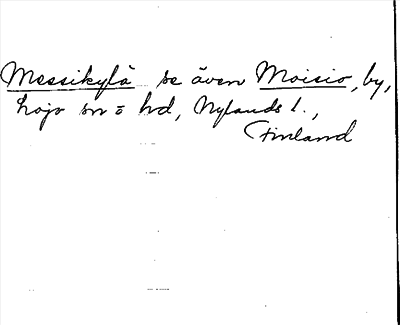 Messikylä se även Moisio, by,
Lojo sn o hd, Nylands l.,
Finland